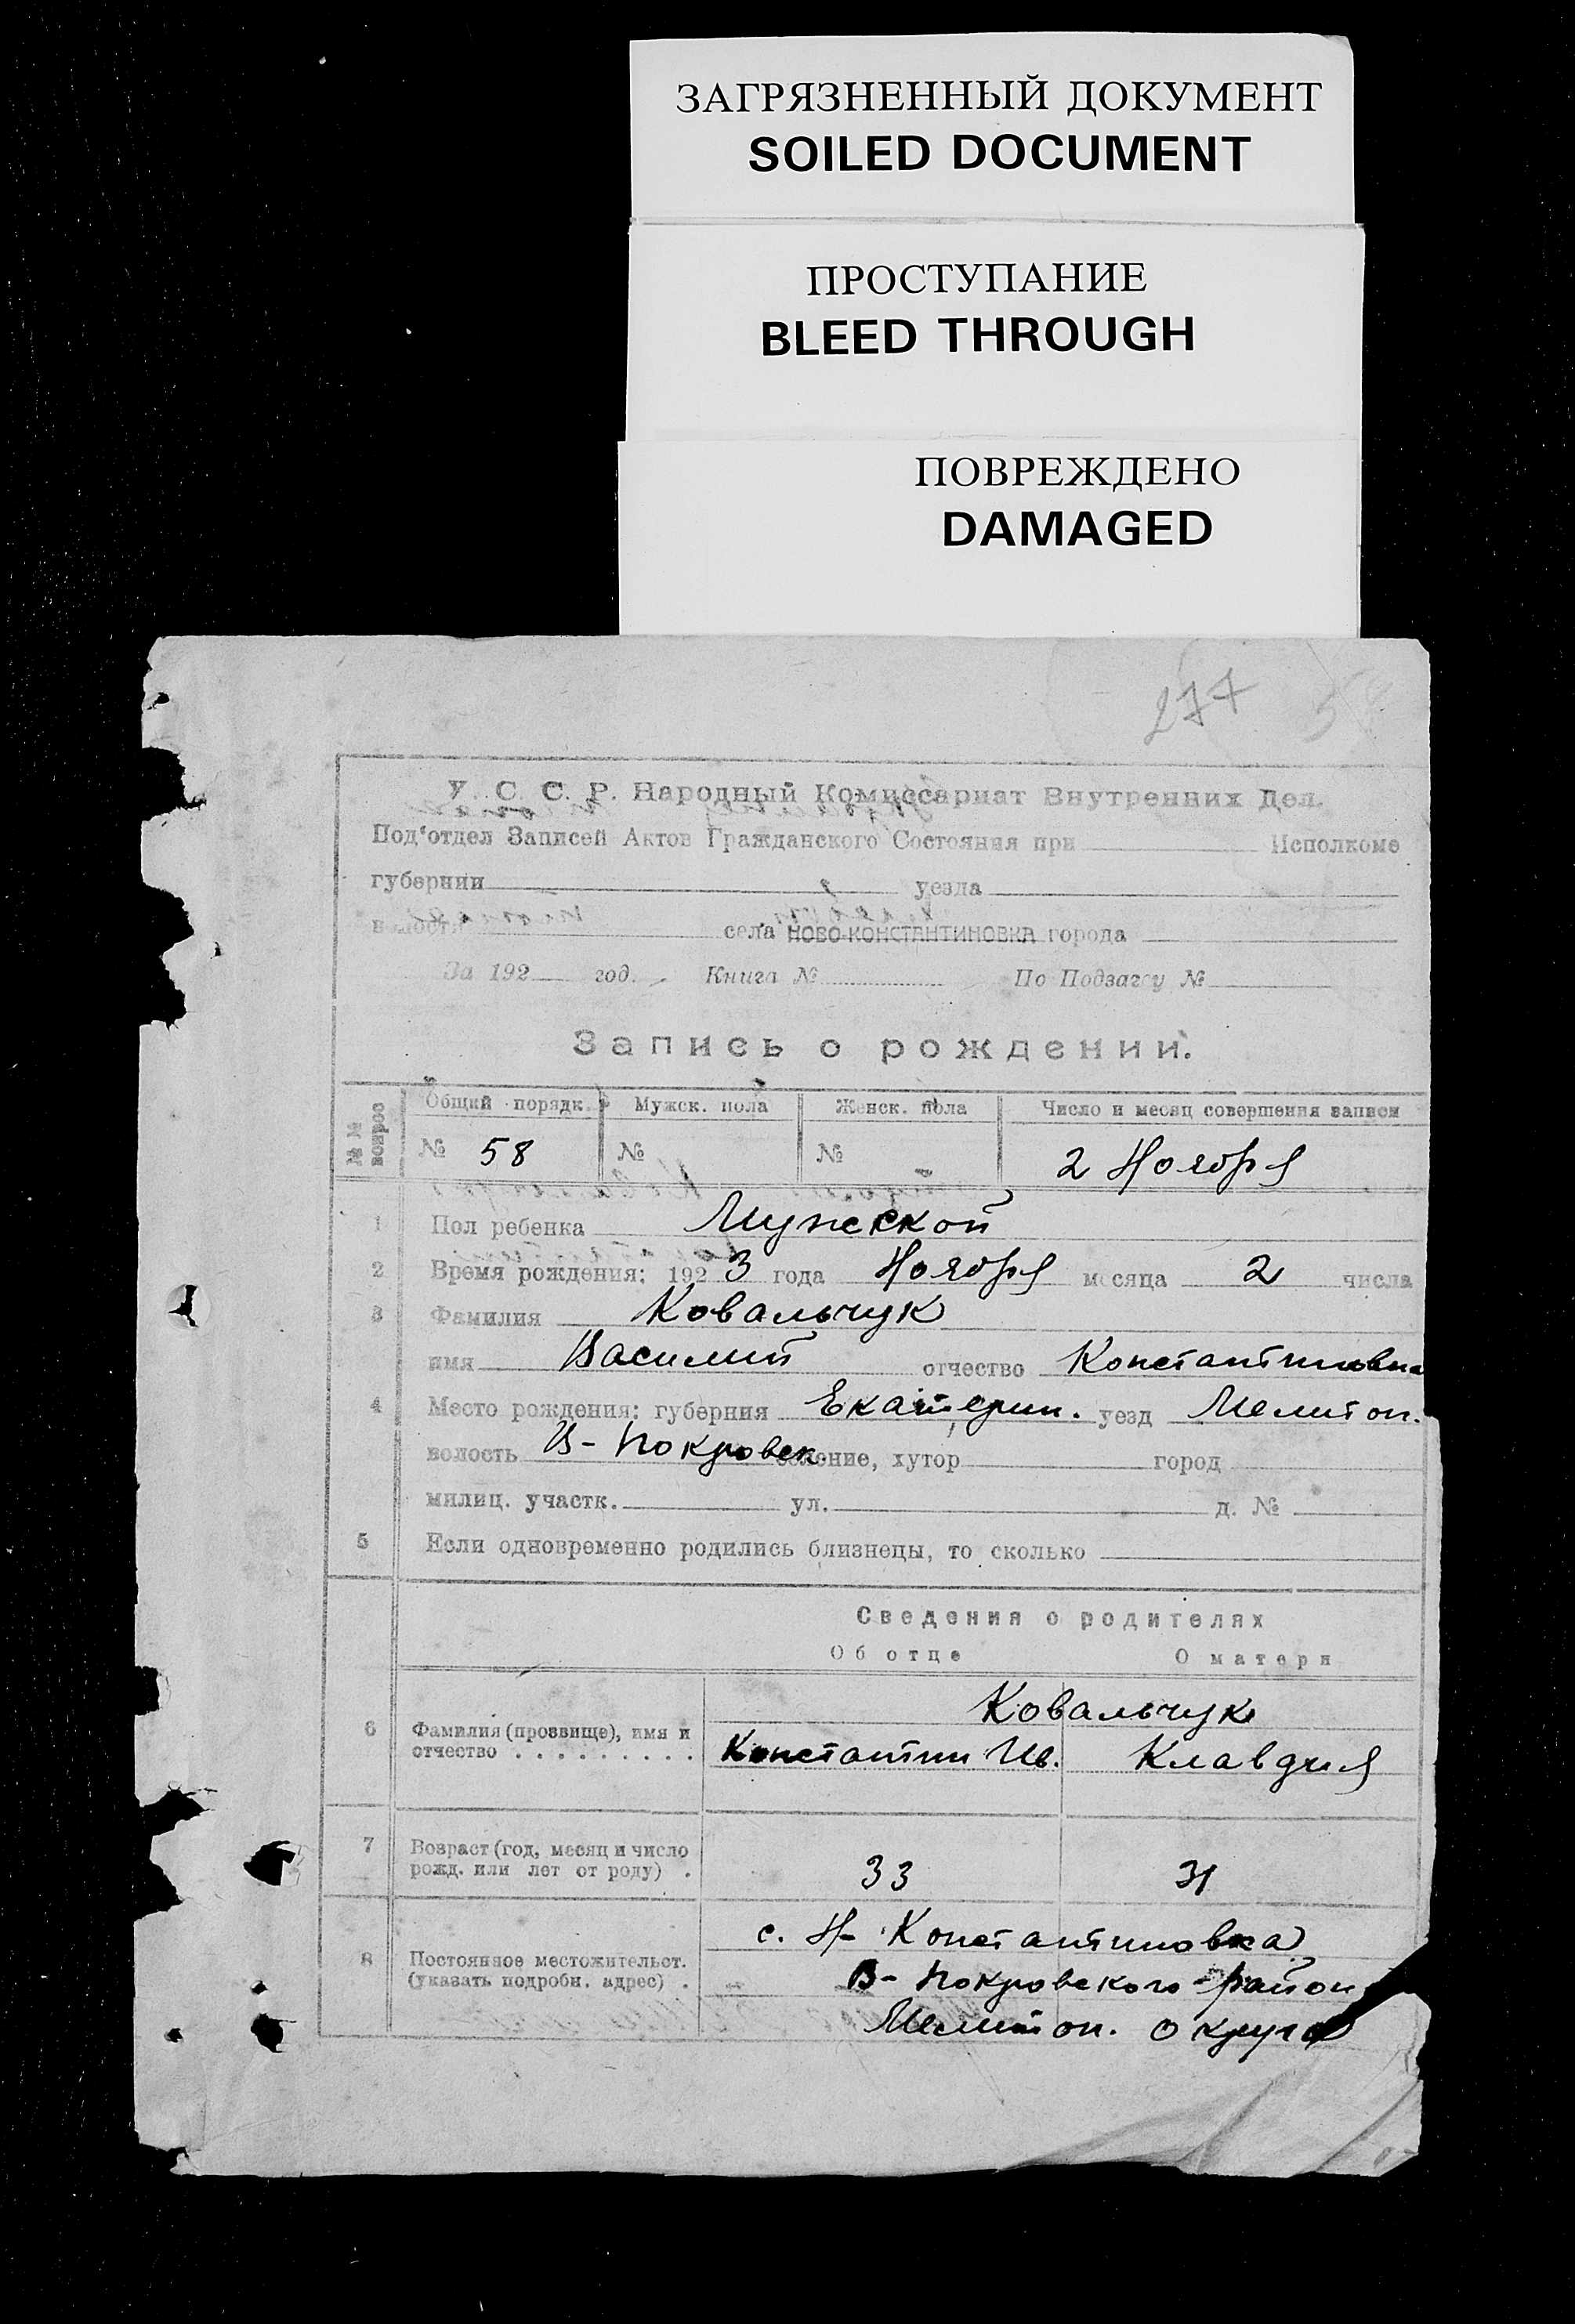 ЗАГРЯЗНЕННЫЙ ДОКУМЕНТ
SOILED DOCUMENT
ПРОСТУПАНИЕ
BLEED THROUGH
ПОВРЕЖДЕНО
DAMAGED
277 58
У. С. С. Р. Народный Комиссариат Внутренних Дел.
Под'отдел Записей Актов Гражданского Состояния при Исполкоме
губернии уезда
волости села НОВО-КОНСТАНТИНОВКА города
За 192 год. Книга № По Подзагсу №
Запись о рождении.
№№ вопрос Общий порядк. Мужск. пола Женск. пола Число и месяц совершения записи
№ 58 № № 2 Ноября
1 Пол ребенка Мужской
2 Время рождения: 1923 года Ноября месяца 2 числа
3 Фамилия Ковальчук
имя Василий отчество Константиновна
4 Место рождения: губерния Екатерин. уезд Мелитоп.
волость В-Покровск. селение, хутор город
милиц. участк. ул. д. №
5 Если одновременно родились близнецы, то сколько
Сведения о родителях
Об отце О матери
Ковальчук
6 Фамилия (прозвище), имя и
отчество . . . . . . . . . Константин Ив. Клавдия
7 Возраст (год, месяц и число
рожд. или лет от роду) . 33 31
с. Н-Константиновка
8 Постоянное местожительст.
(указать подробн. адрес) . В-Покровского район
Мелитоп. округа